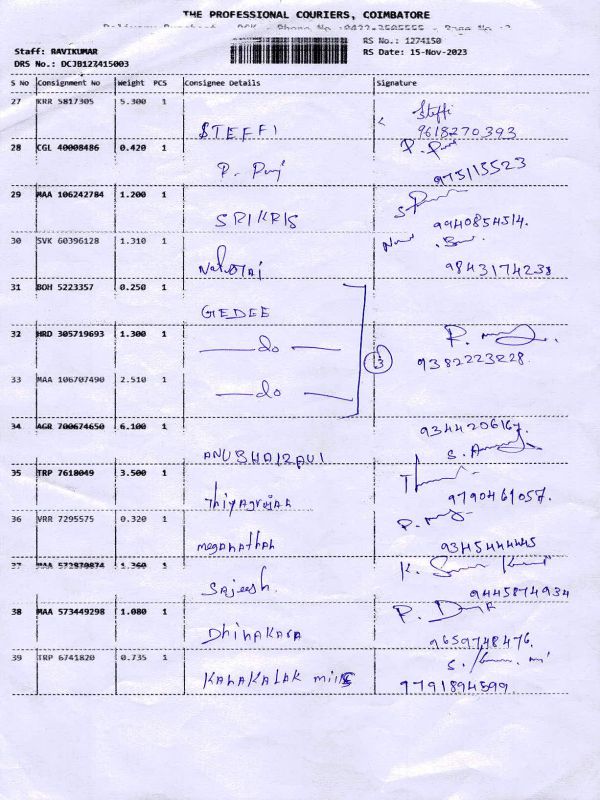 THE PROFESSIONAL COURIERS, COIMBATORE
Staff: RAVIKUMAR
RS No.: 1274150
DRS No.: DCJB127415003
RS Date: 15-Nov-2023
S No Consignment No Weight PCS Consignee Details Signature
27 KRR 5817305 5.300 1
STEFFI Steffi
9618270393
28 CGL 40008486 0.420 1
P. 975115523
29 MAA 106242784 1.200 1
SRIKRIS 9940854514.
30 SVK 60396128 1.310 1
9843174238
31 BOH 5223357 0.250 1
GEDEE
32 HRD 305719693 1.300 1
do 3 9382223228.
33 MAA 106707490 2.510 1
do
34 AGR 700674650 6.100 1 9344206167
35 TRP 7618049 3.500 1
Thiyagrajah 9790461057.
36 VRR 7295575 0.320 1
meganathan 9345444445
37 MAA 572870874 1.360 1
Sajeesh. 9445874934
38 MAA 573449298 1.080 1
Dhinakara 9659748476.
39 TRP 6741820 0.735 1
9791894599.